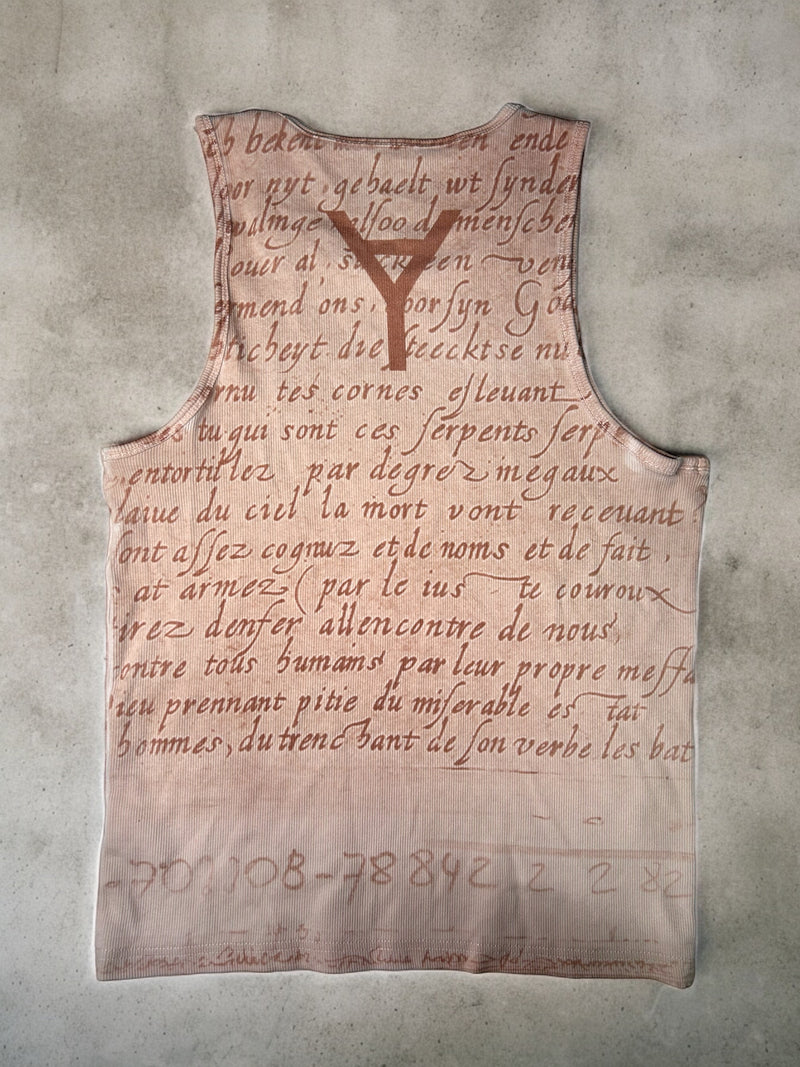 bekent en ende
oor nyt , gehaelt wt synder
alsoo d menschen
ouer al , een ven
ermend ons , oor syn God
ticheyt die steecktse nu
rnu tes cornes esleuant
es tu qui sont ces serpents serp
, entortillez par degrez inegaux
laiue du ciel la mort vont receuant
sont assez cognuz et de noms et de fait ,
at armez ( par le ius te couroux
irez denfer allencontre de nous ,
contre tous humains par leur propre meffa
ieu prennant pitie du miserable es tat
hommes , du trenchant de son verbe les bat
-78 842 2 2 82